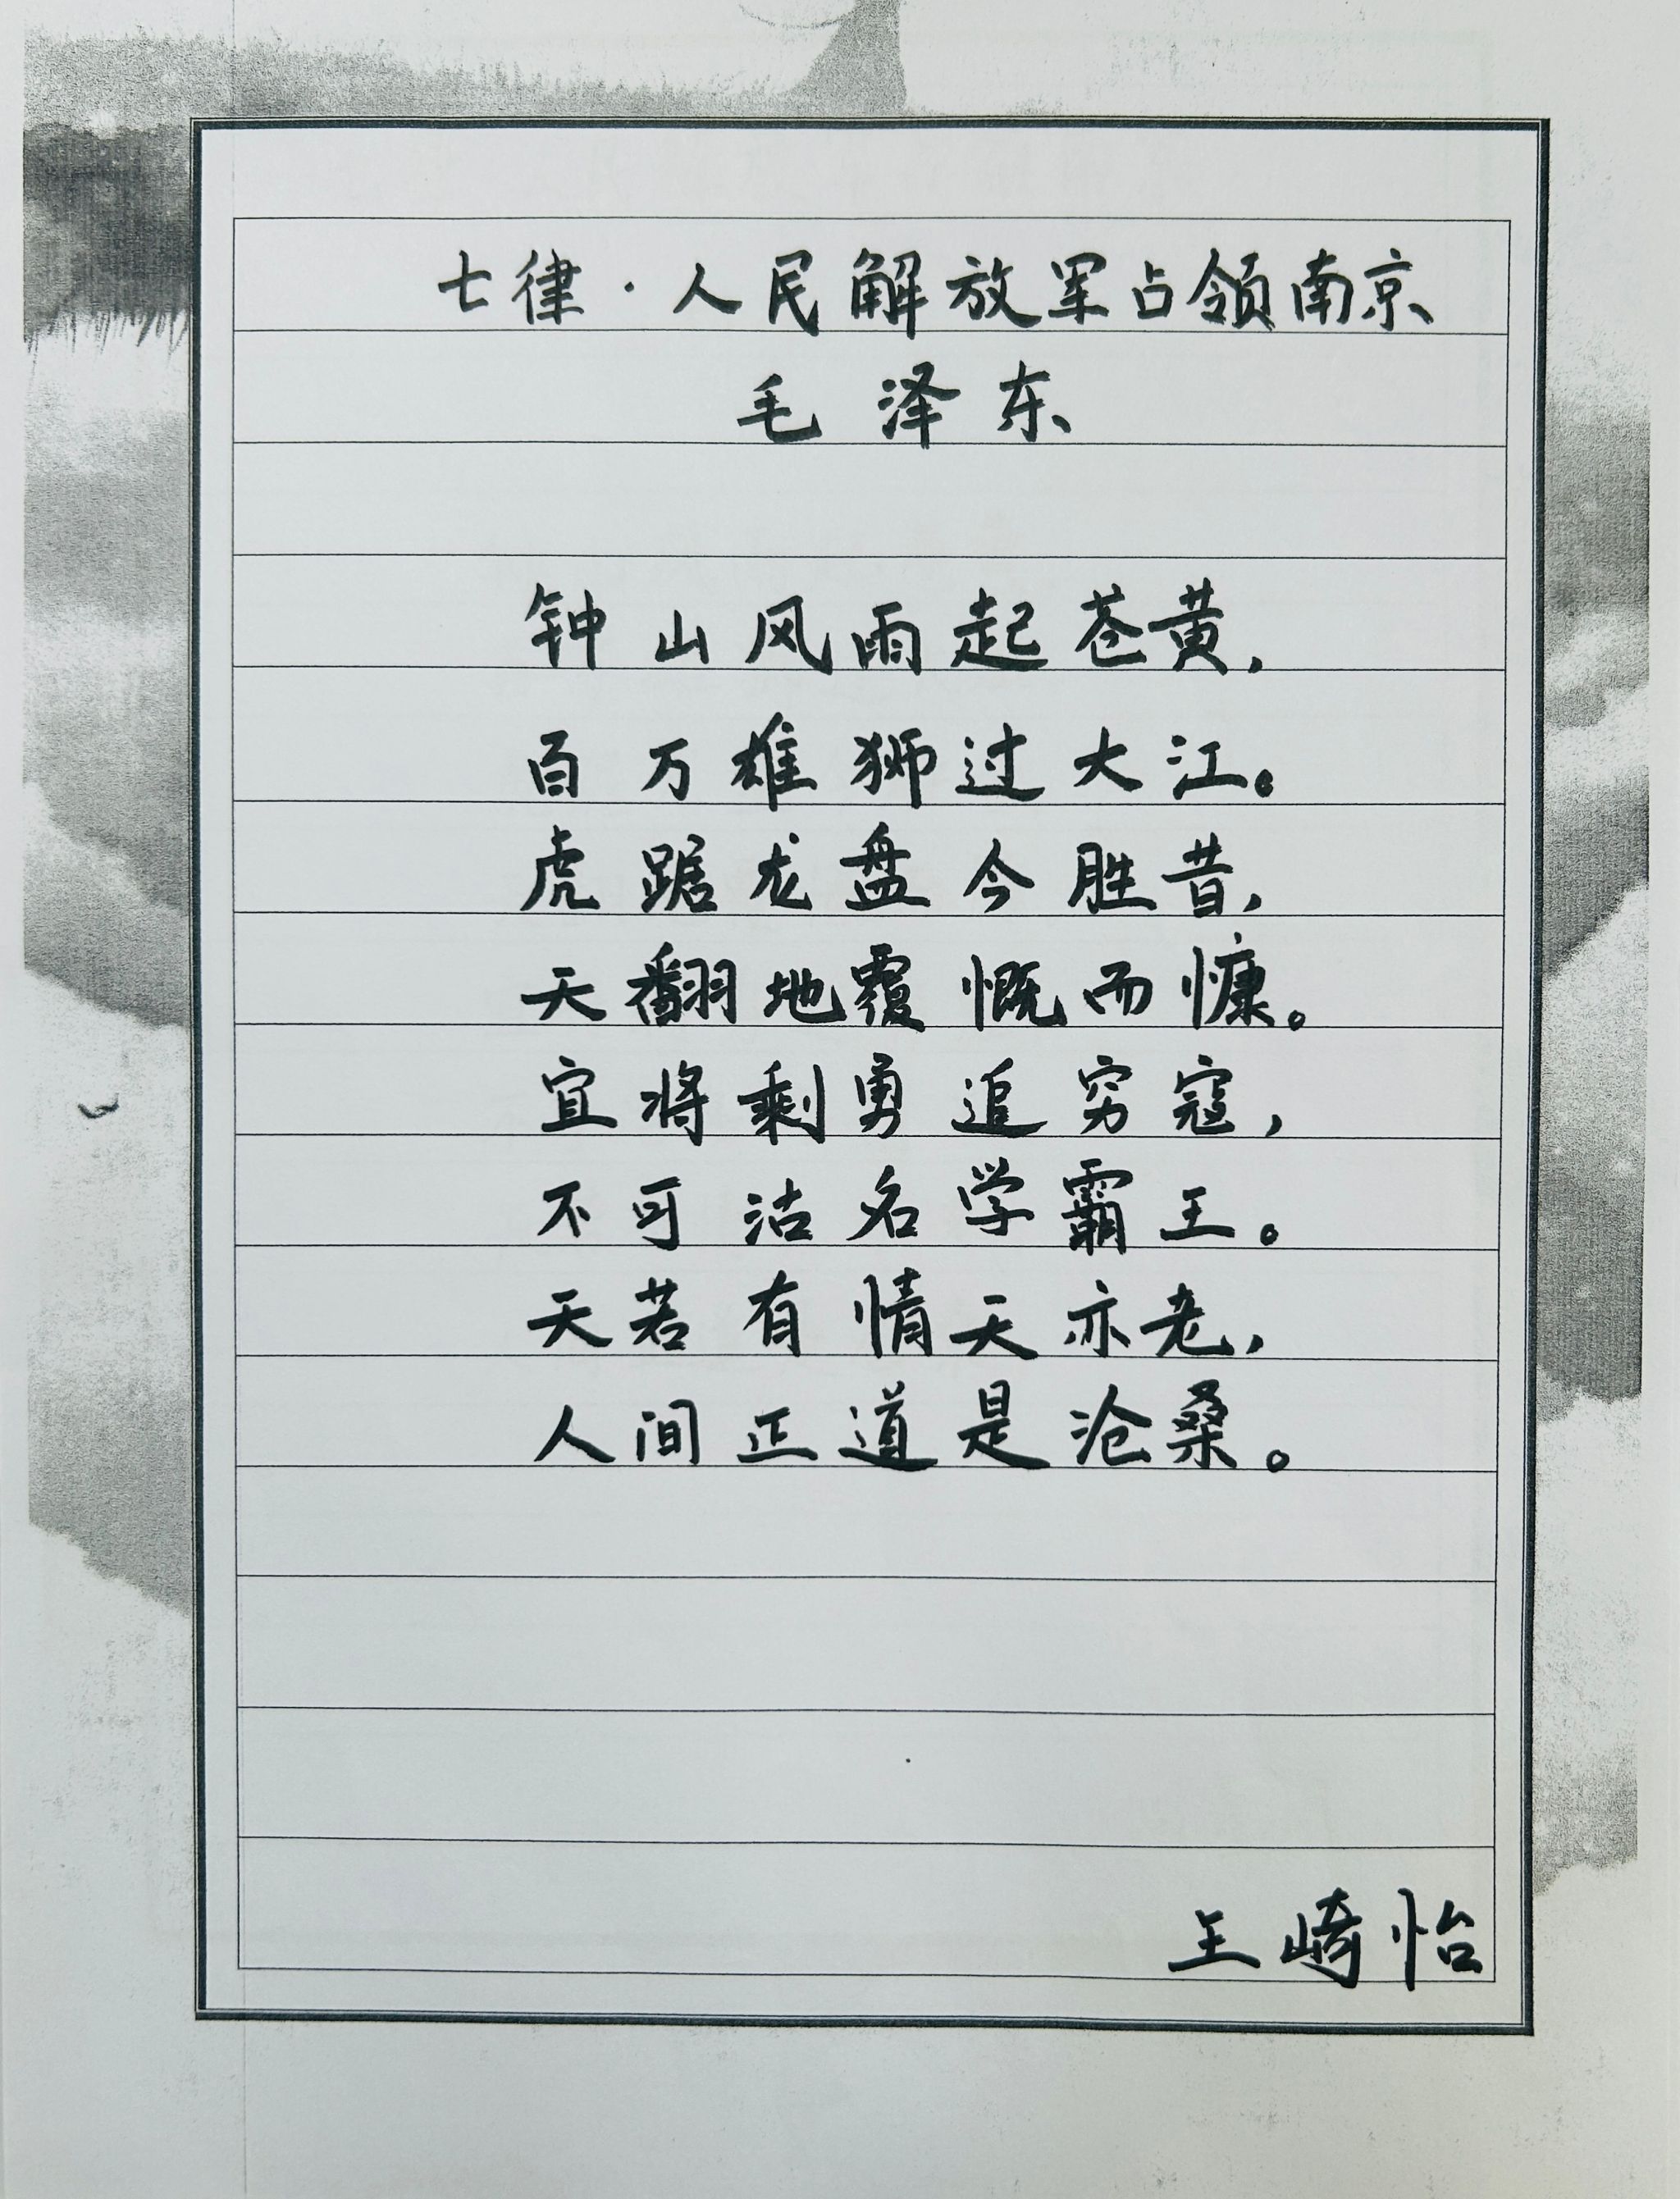 七律·人民解放军占领南京
毛泽东
钟山风雨起苍黄，
百万雄狮过大江。
虎踞龙盘今胜昔，
天翻地覆慨而慷。
宜将剩勇追穷寇，
不可沽名学霸王。
天若有情天亦老，
人间正道是沧桑。
王崎怡